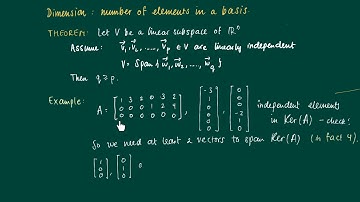 Dimension: number of elements in a basis.
THEOREM: Let V be a linear subspace of ℝⁿ
Assume: v⃗₁, v⃗₂, ..., v⃗ₚ ∈ V are linearly independent
V = Span{w⃗₁, w⃗₂, ..., w⃗_q}
Then q ≥ p.
Example: A = [1 3 2 0 3 2; 0 0 0 1 2 4; 0 0 0 0 0 0], [-3 1 0 0 0 0], [0 0 0 -2 1 0] independent elements
in Ker(A) - check!
So we need at least 2 vectors to span Ker(A) (in fact 4).
[1 0 0], [0 1 0]